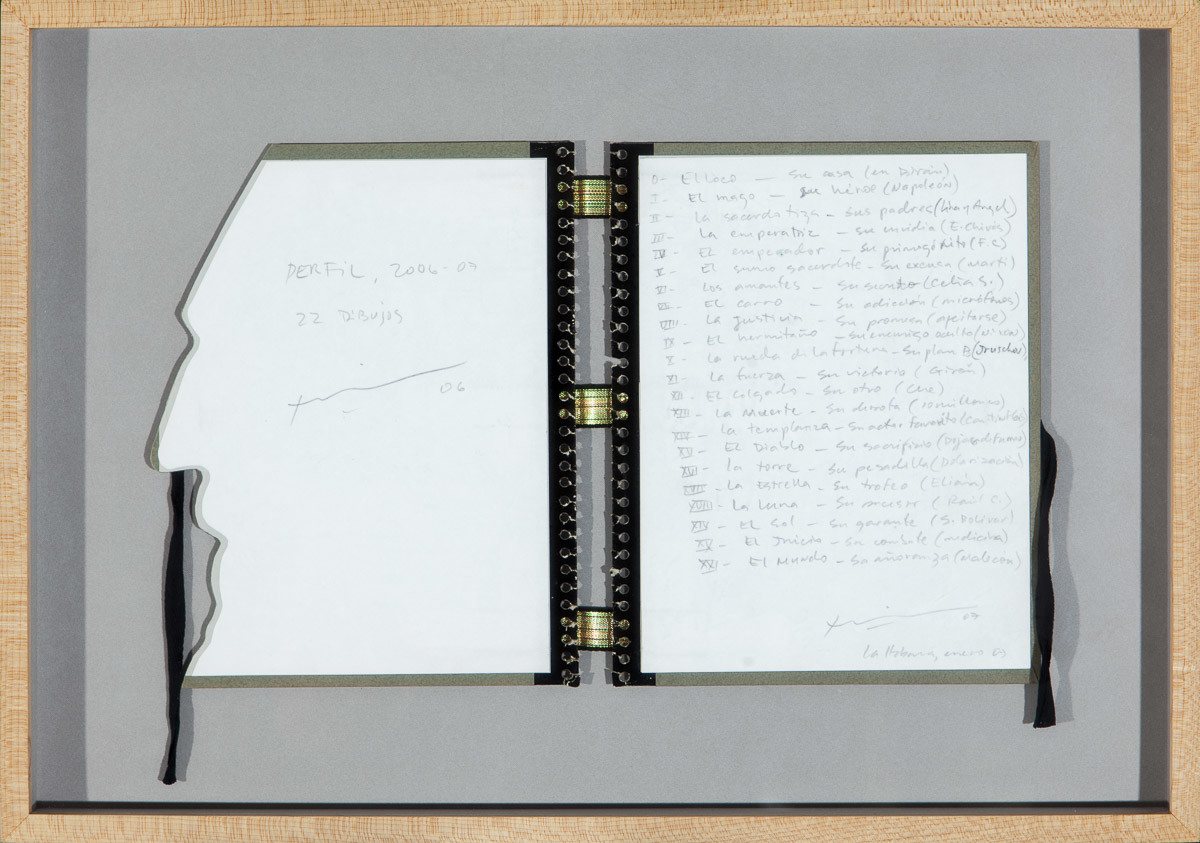 PERFIL, 2006-07
22 DIBUJOS
06
0- El loco — su casa (en Birán)
I- EL mago — su héroe (Napoleón)
II- La sacerdotiza — sus padres (Lina y Angel)
III- La emperatriz — su envidia (E. Chivás)
IV- EL emperador — su primogénito (F.C)
V- El sumo sacerdote — su excusa (Martí)
VI- Los amantes — su (Celia S.)
VII- EL carro — Su adicción (micrófonos)
VIII- La justicia — Su promesa (afeitarse)
IX- EL hermitaño — su enemigo oculto (Nixon)
X- La rueda de la fortuna — Su plan B (Jruschov)
XI- La fuerza — Su victoria (Girón)
XII- EL colgado — Su otro (Che)
XIII- La Muerte — Su derrota (10 millones)
XIV- La templanza — Su actor favorito
XV- EL Diablo — Su sacrificio (Dejar de fumar)
XVI- La torre — Su pesadilla (Dolarización)
XVII- La Estrella — Su trofeo (Elián)
XVIII- La luna — Su sucesor (Raúl C.)
XIV- EL Sol — Su garante (S. Bolívar)
XV- EL Juicio — Su (medicina)
XVI- El Mundo — Su añoranza (Malecón)
07
La Habana, enero 07